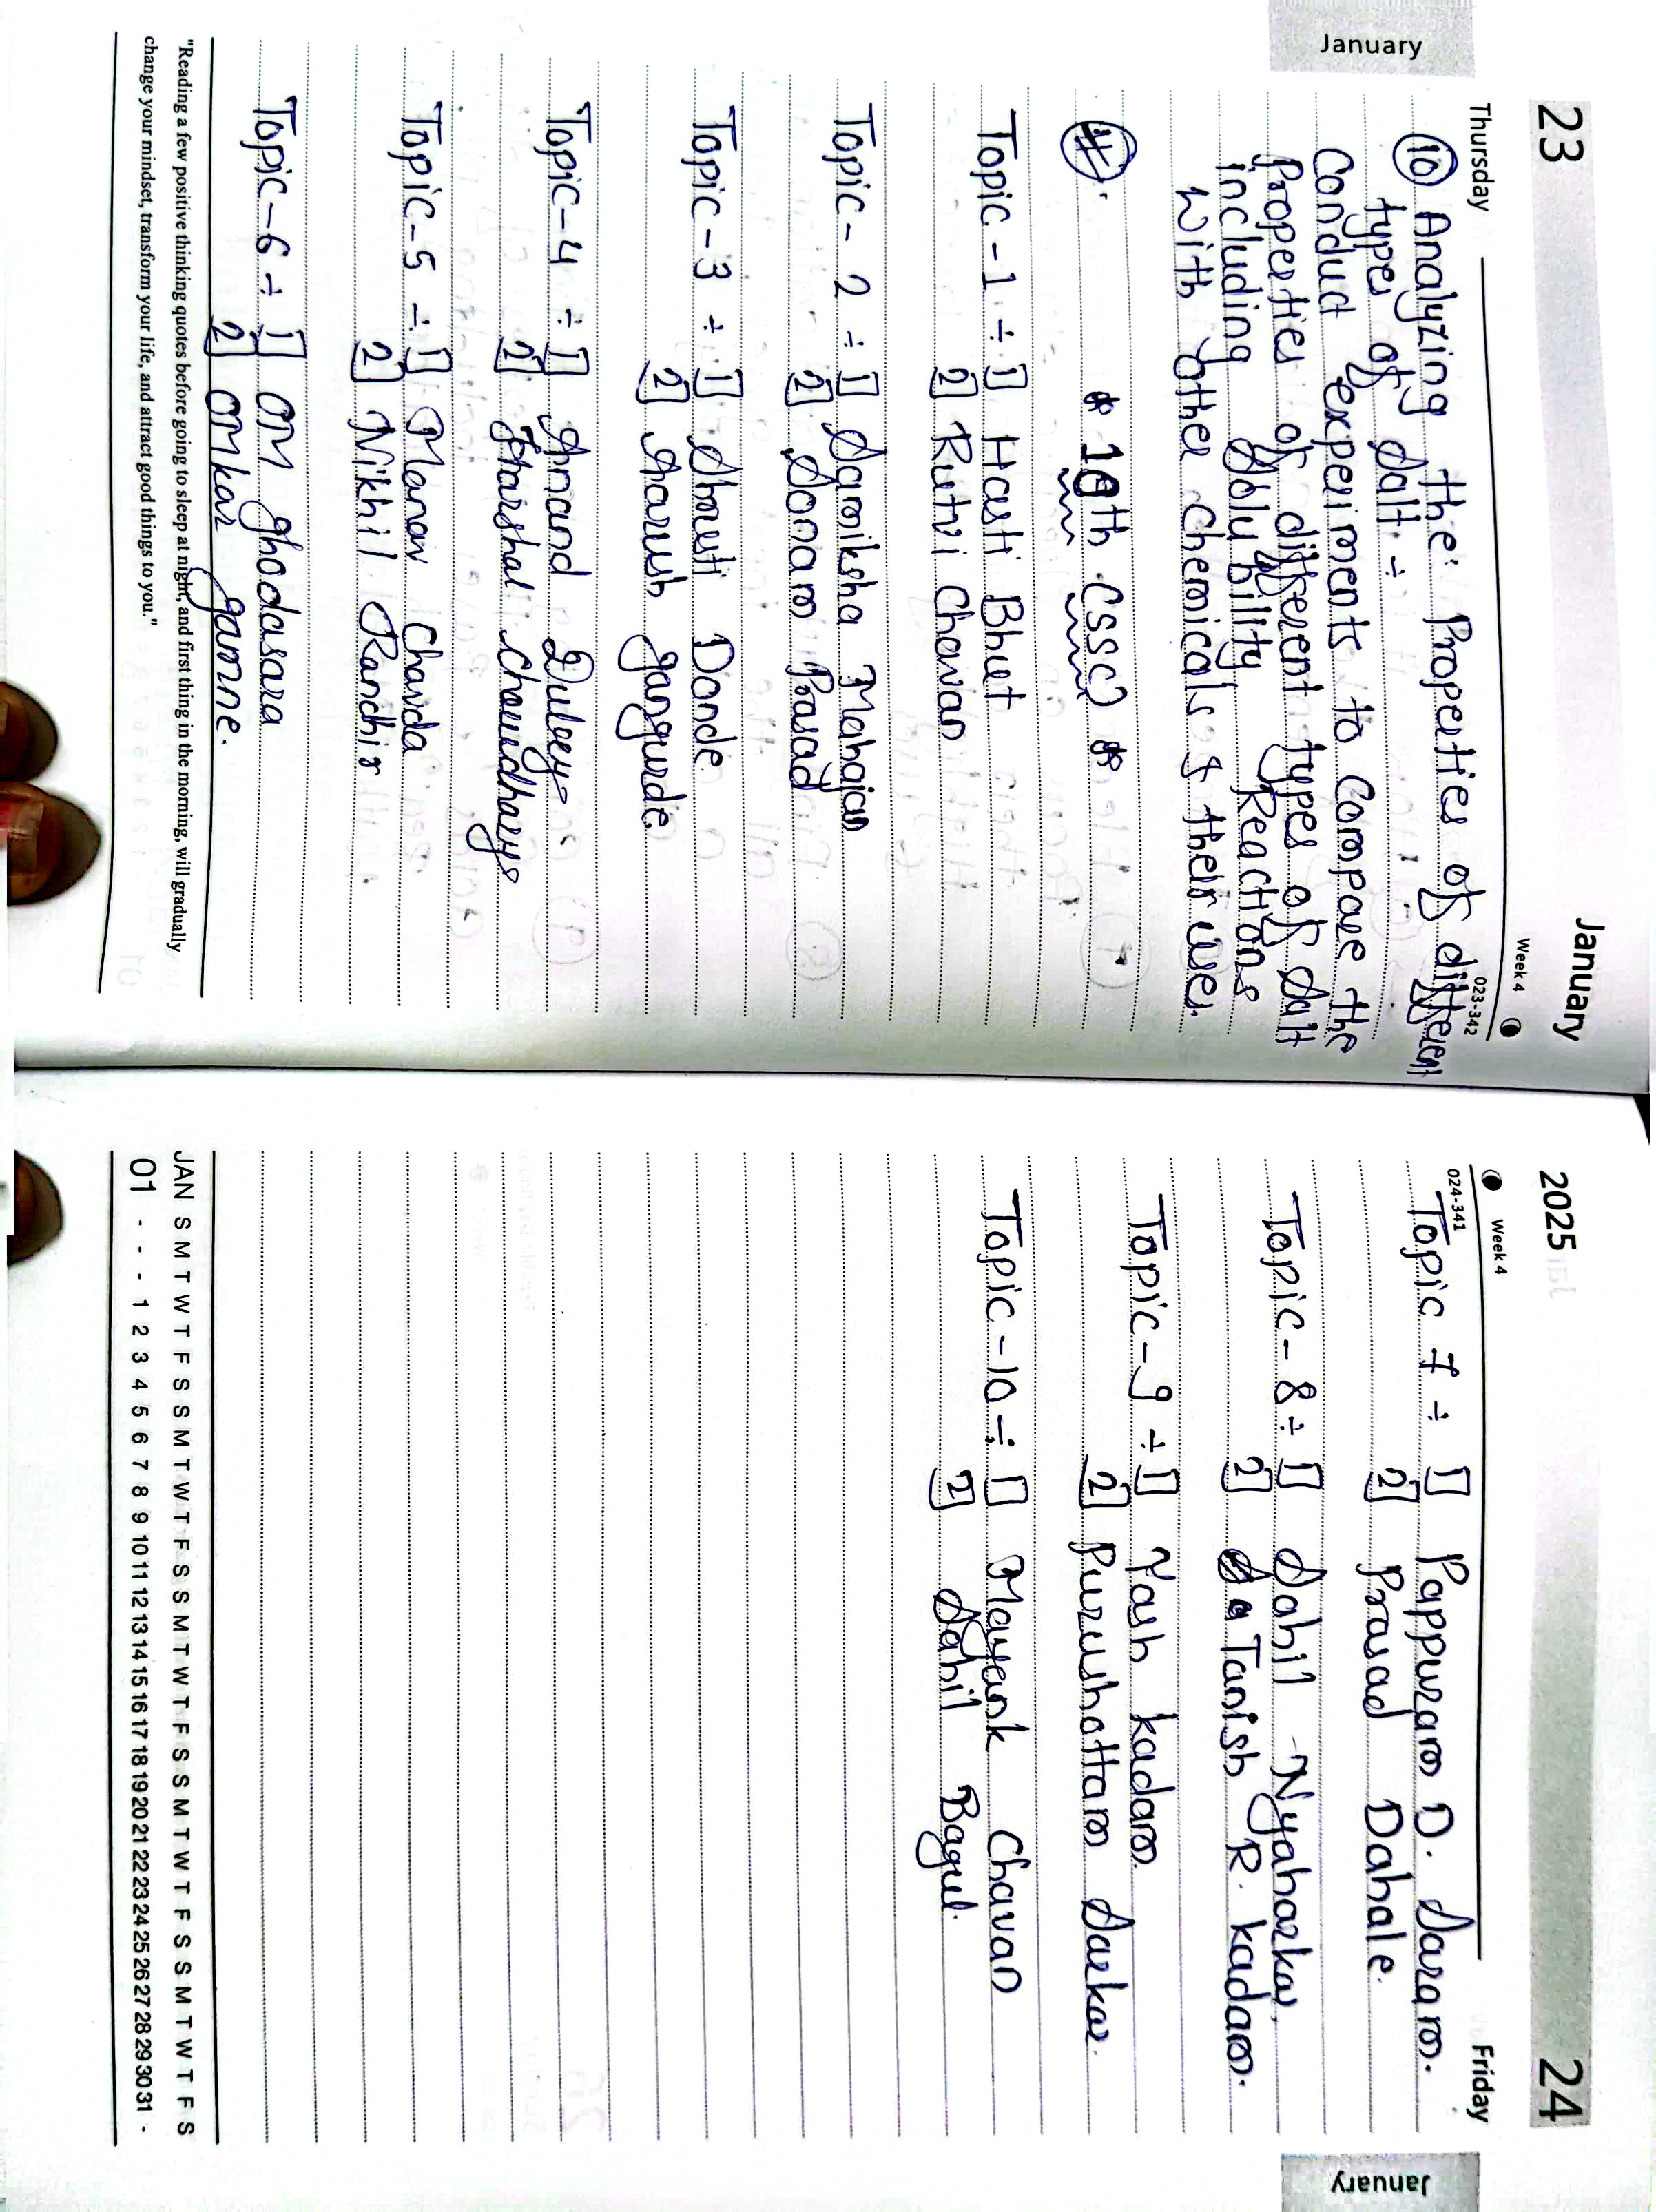 January
23
January
Thursday
Week 4
023-342
10 Analyzing the Properties of different
types of salt ÷
Conduct experiments to compare the
Properties of different types of salt
including solubility, Reactions
with other chemicals & their uses.
* 10th (SSC) *
Topic-1 ÷ 1] Hasti Bhut
2] Rutvi Chavan
Topic-2 ÷ 1] Samiksha Mahajan
2] Sonam Prasad
Topic-3 ÷ 1] Shruti Donde
2] Aarush gangurde.
Topic-4 ÷ 1] Anand Dubey
2] Harshal Choudhary
Topic-5 ÷ 1] Manav Chavda
2] Nikhil Randhir
Topic-6 ÷ 1] OM ghodasara
2] OMkar gamne.
"Reading a few positive thinking quotes before going to sleep at night, and first thing in the morning, will gradually
change your mindset, transform your life, and attract good things to you."
2025
24
Week 4
Friday
024-341
January
Topic 7 ÷ 1] Pappuram D. Saram.
2] Prasad Dahale.
Topic-8 ÷ 1] Sahil Nyaharkar
2] Tanish R. kadam.
Topic-9 ÷ 1] Yash kadam.
2] Purushottam Sarkar.
Topic-10 ÷ 1] Mayank Chavan
2] Sahil Bagul.
JAN S M T W T F S S M T W T F S S M T W T F S S M T W T F S S M T W T F S
01 - - - 1 2 3 4 5 6 7 8 9 10 11 12 13 14 15 16 17 18 19 20 21 22 23 24 25 26 27 28 29 30 31 -